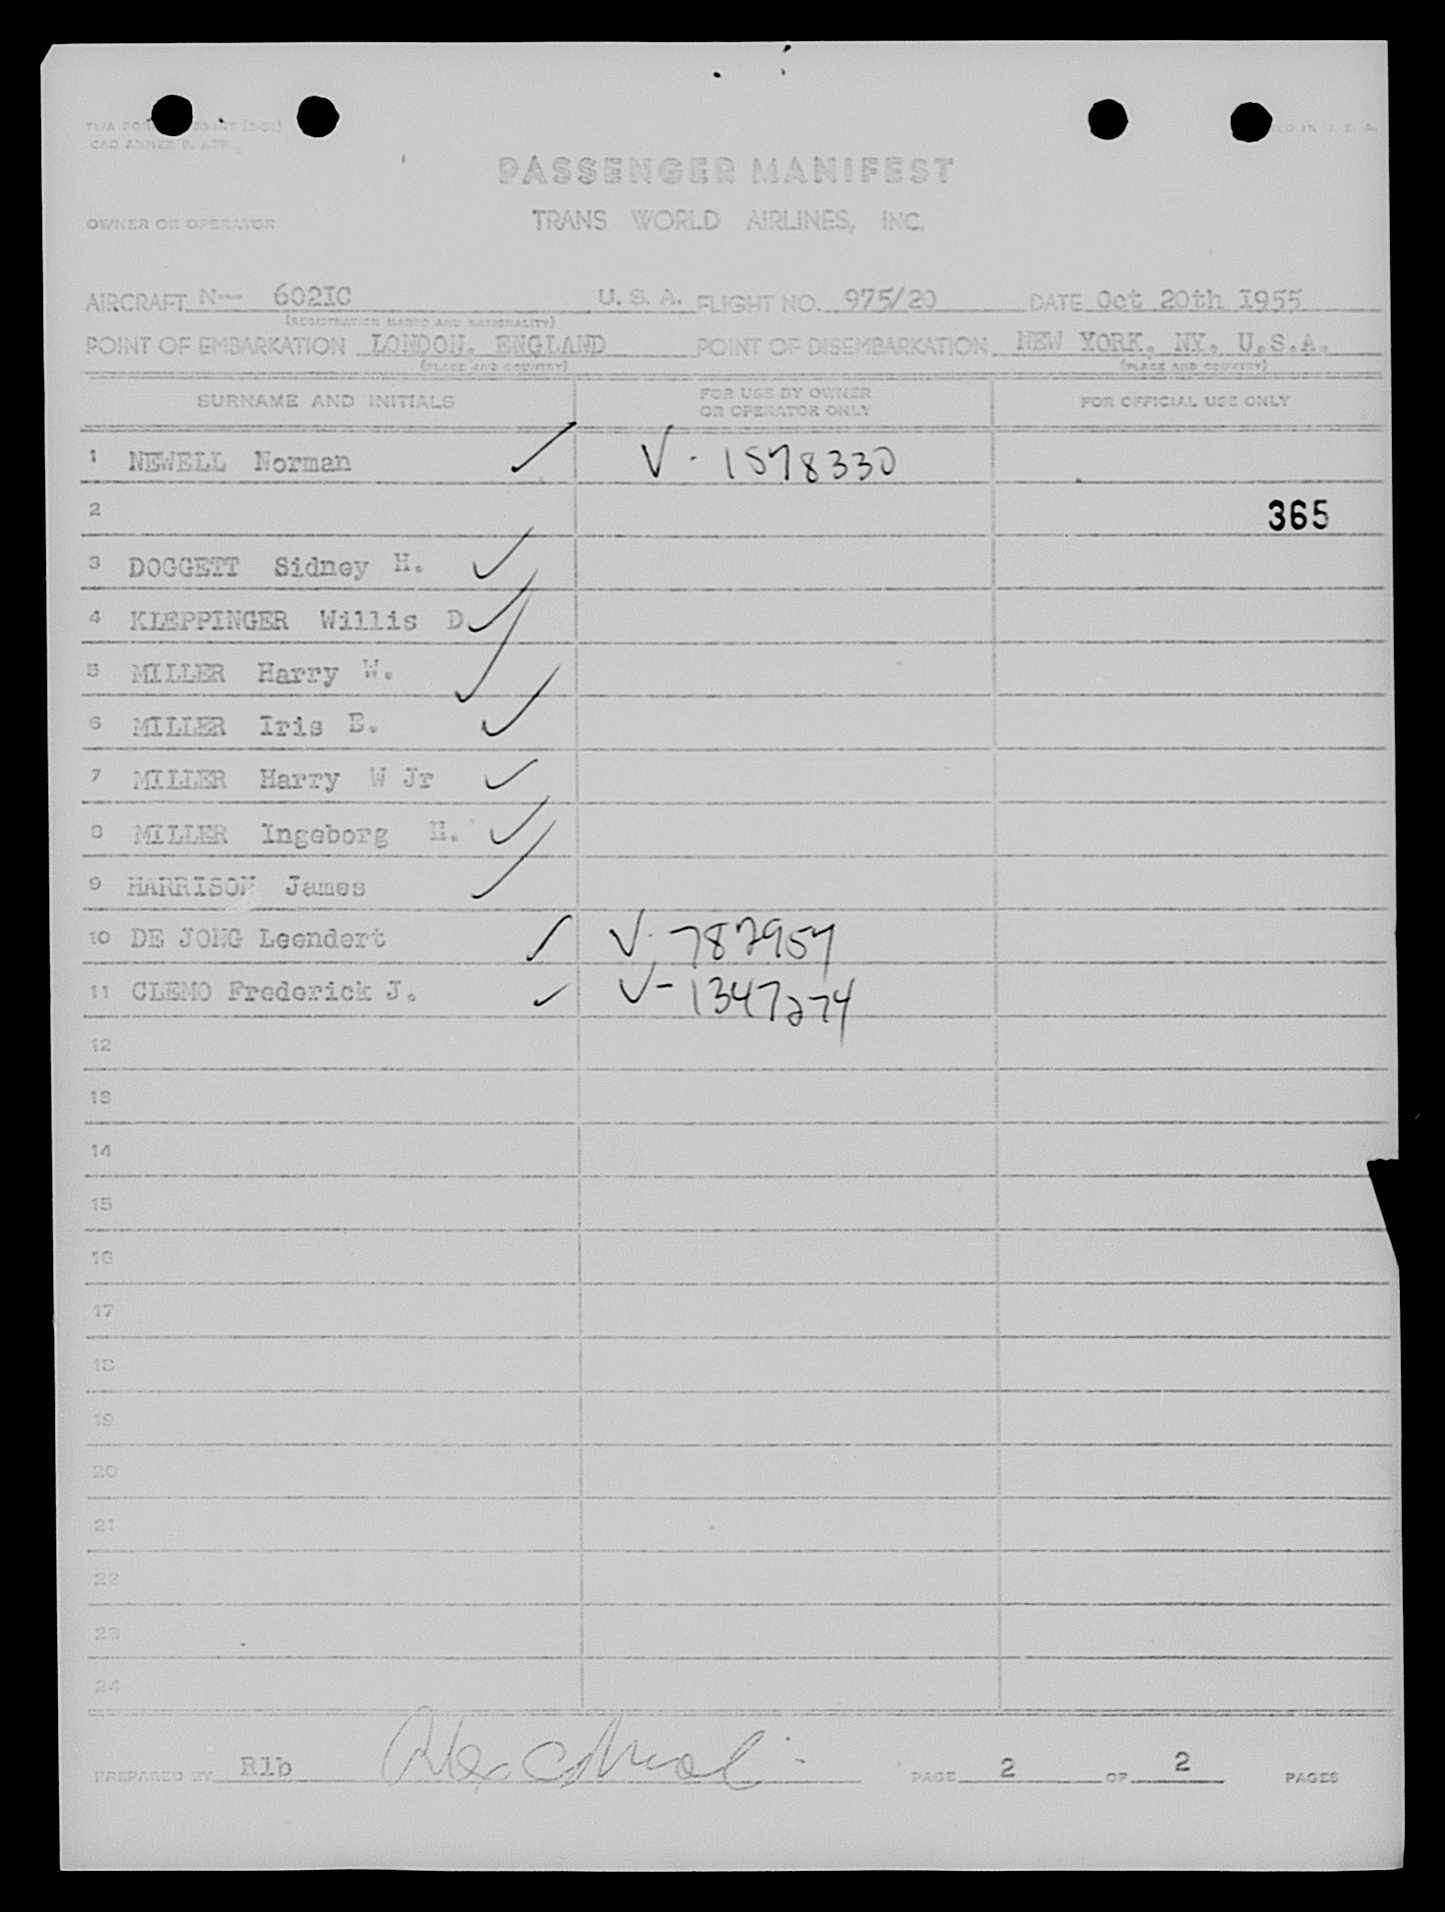 CAO ANNEX 9, APP.
PASSENGER MANIFEST
OWNER OR OPERATOR TRANS WORLD AIRLINES, INC.
AIRCRAFT N— 602IC U. S. A. FLIGHT NO. 975/20 DATE Oct 20th I955
(REGISTRATION MARKS AND NATIONALITY)
POINT OF EMBARKATION LONDON. ENGLAND POINT OF DISEMBARKATION NEW YORK, NY. U.S.A.
(PLACE AND COUNTRY) (PLACE AND COUNTRY)
SURNAME AND INITIALS FOR USE BY OWNER OR OPERATOR ONLY FOR OFFICIAL USE ONLY
1 NEWELL Norman ✓ V - 1578330
2 365
3 DOGGETT Sidney H. ✓
4 KLEPPINGER Willis D ✓
5 MILLER Harry W. ✓
6 MILLER Iris E. ✓
7 MILLER Harry W Jr ✓
8 MILLER Ingeborg H. ✓
9 HARRISON James ✓
10 DE JONG Leendert ✓ V. 787957
11 CLEMO Frederick J. ✓ V- 1347274
12
13
14
15
16
17
18
19
20
21
22
23
24
PREPARED BY Rlb PAGE 2 OF 2 PAGES